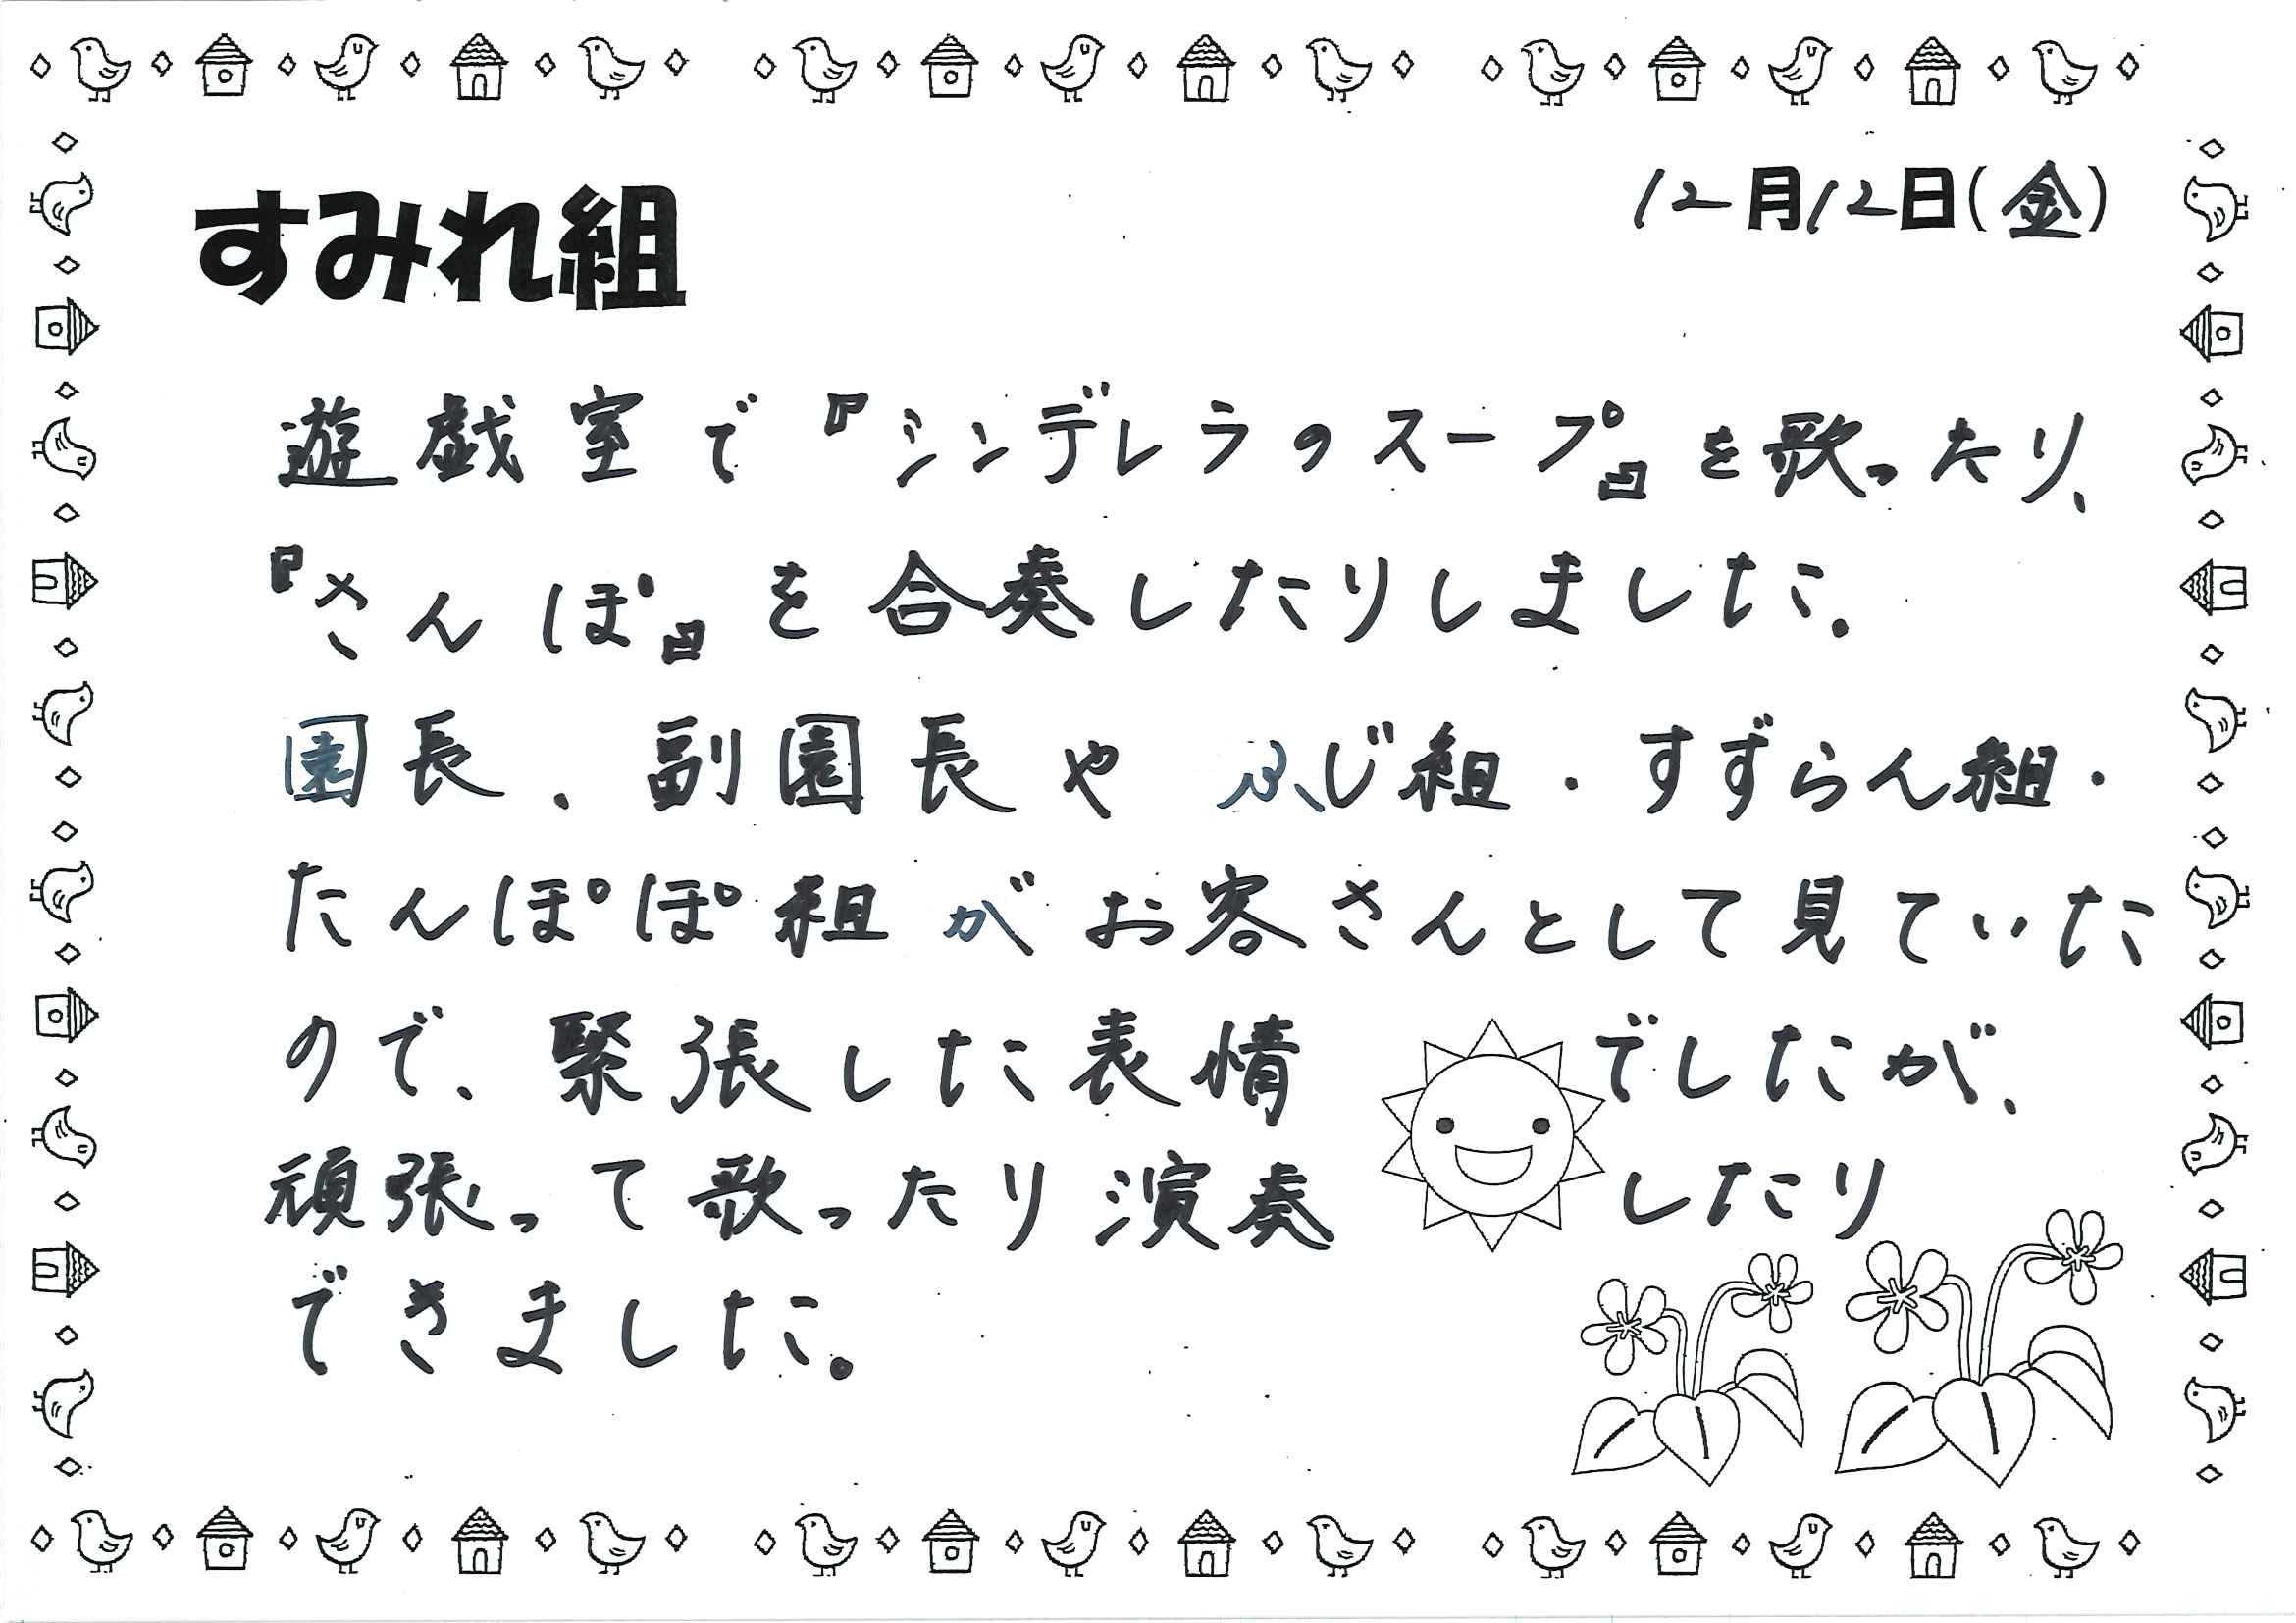 12月12日(金)
すみれ組
遊戯室で『シンデレラのスープ』を歌ったり、
『さんぽ』を合奏したりしました。
園長、副園長や ふじ組・すずらん組・
たんぽぽ組がお客さんとして見ていた
ので、緊張した表情でしたが、
頑張って歌ったり演奏したり
できました。